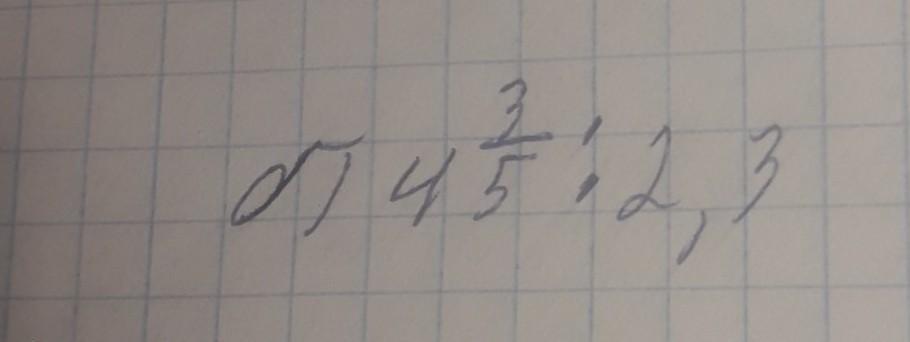 б) 4 3/5 : 2,3